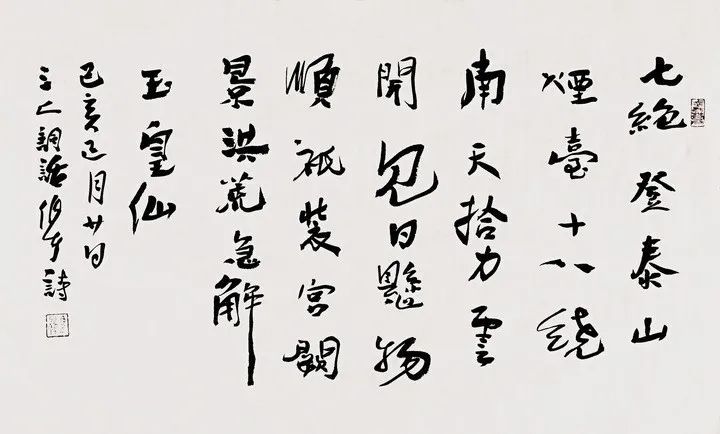 七絕 登泰山
煙臺十八繞
南天拾力雲
開見日懸物
順祇裝宮闕
景洪荒急解
玉皇仙
己亥正月廿日
詞話詩